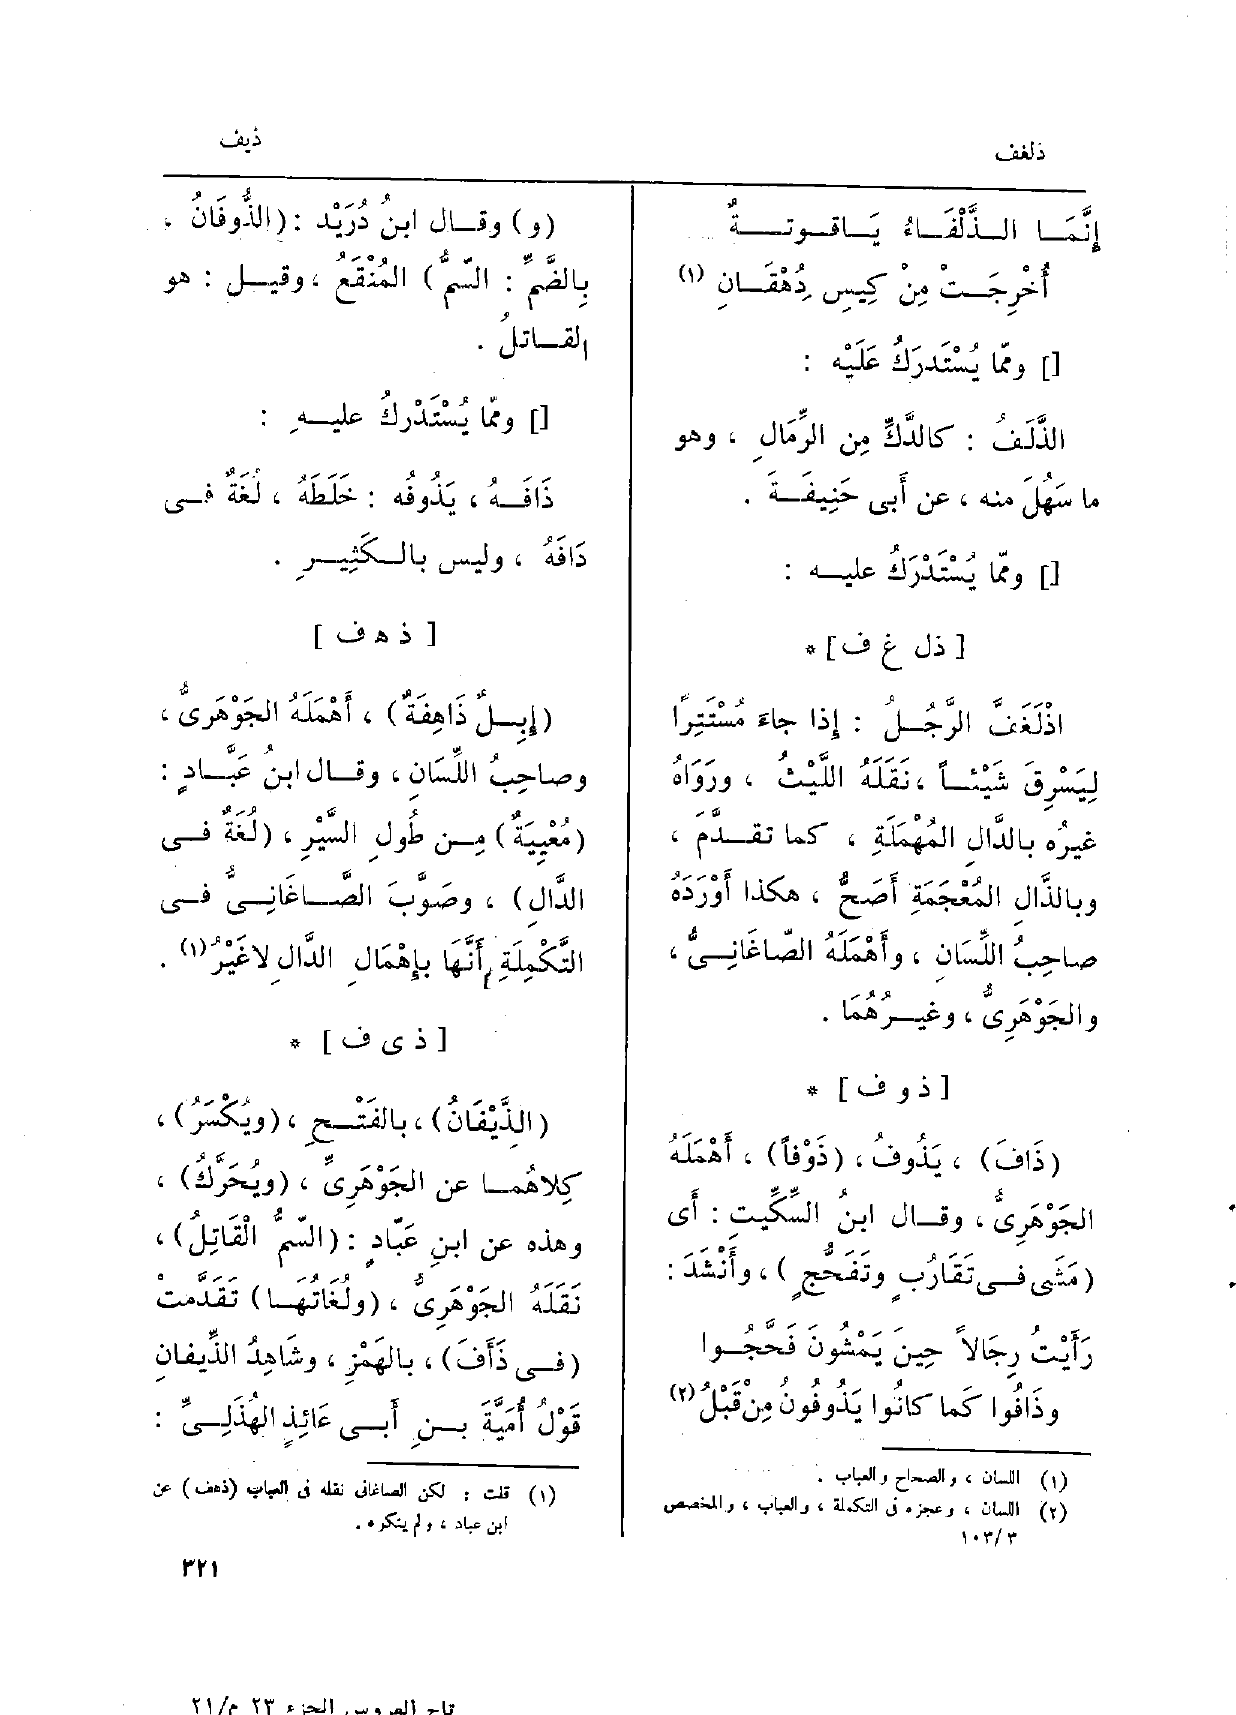 ذلغف
ذيف
إِنَّمَا الذَّلْفَاءُ يَاقُوتةٌ
أُخْرِجَتْ مِنْ كِيسِ دِهْقَانِ (١)
[] وممّا يُسْتَدرَكُ عَلَيْه :
الذَّلَفُ : كالدَّكِّ مِن الرِّمَالِ ، وهو
ما سَهُلَ منه ، عن أَبى حَنِيفَةَ .
[] وممّا يُسْتَدْرَكُ عليه :
[ ذل غ ف ] *
اذْلَغَفَّ الرَّجُلُ : إذا جاءَ مُسْتَتِرًا
لِيَسْرِقَ شَيْئاً ، نَقَلَهُ اللَّيْثُ ، ورَوَاهُ
غيرُه بالدَّالِ المُهْمَلَةِ ، كما تقدَّمَ ،
وبالذَّالِ المُعْجَمَةِ أَصَحُّ ، هكذا أَوْرَدَهُ
صاحِبُ اللِّسَانِ ، وأَهْمَلَهُ الصّاغَانِىُّ ،
والجَوْهَرِىُّ ، وغيرُهُمَا .
[ ذ و ف ] *
(ذَافَ) ، يَذُوفُ ، (ذَوْفاً) ، أَهْمَلَهُ
الجَوْهَرِىُّ ، وقال ابنُ السِّكِّيتِ : أَى
(مَشَى فى تَقَارُبٍ وتَفَحُّجٍ ) ، وأَنْشَدَ :
رَأَيْتُ رِجَالاً حِينَ يَمْشُونَ فَحَّجُوا
وذَافُوا كما كانُوا يَذُوفُونُ مِنْ قَبْلُ (٢)
(١) اللسان ، والصحاح والعباب .
(٢) اللسان ، وعجزه فى التكملة ، والعباب ، والمخصص
٣ /١٠٣
(و) وقال ابنُ دُرَيْد : (الذُّوفَانُ ،
بِالضَّمِّ : السّمُّ) المُنْقَعُ ، وقيل : هو
القاتلُ .
[] وممّا يُسْتَدْركُ عليهِ :
ذَافَهُ ، يَذُوفُه : خَلَطَهُ ، لُغَةٌ فى
دَافَهُ ، وليس بالكَثِيرِ .
[ ذ ه ف ]
(إِبلٌ ذَاهِفَةٌ) ، أَهْمَلَهُ الجَوْهَرِىُّ ،
وصاحِبُ اللِّسَانِ ، وقال ابنُ عَبَّادٍ :
(مُعْيِيَةٌ) مِن طُولِ السَّيْرِ ، (لُغَةٌ فى
الدَّال) ، وصَوَّبَ الصَّاغَانِىُّ فى
التَّكْمِلَةِ أَنَّهَا بإِهْمَالِ الدَّالِ لا غَيْرُ (١) .
[ ذ ى ف ] *
(الذَّيْفَانُ) ، بالفَتْحِ ، (ويُكْسَرُ) ،
كِلاهُمَا عن الجَوْهَرِىِّ ، (ويُحَرَّكُ) ،
وهذه عن ابنِ عَبّادٍ : (السّمُّ الْقَاتِلُ) ،
نَقَلَهُ الجَوْهَرِىُّ ، (ولُغَاتُهَا) تَقَدَّمَتْ
(فى ذَأَفَ) ، بالهَمْزِ ، وشَاهِدُ الذِّيفانِ
قَوْلُ أُمَيَّةَ بنِ أَبى عَائِذٍ الهُذَلِىِّ :
(١) قلت : لكن الصاغانى نقله فى العباب (ذهف) عن
ابن عباد ، ولم ينكره .
٣٢١
تاج العروس الجزء ٢٣ م/٢١